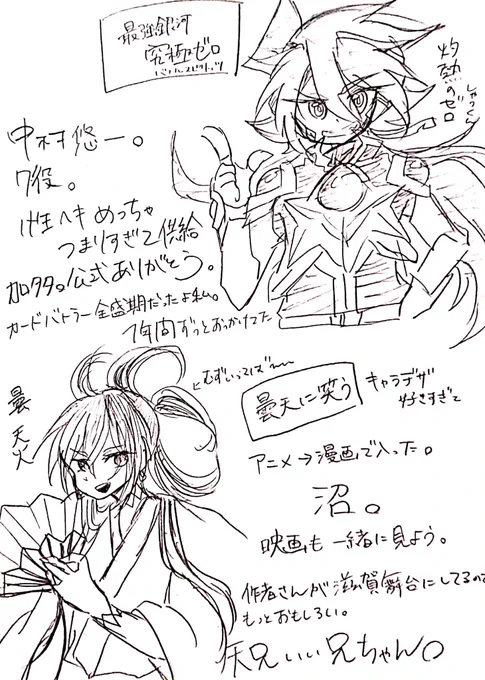 最強銀河
究極ゼロ
バトルスピリッツ
灼熱のゼロ
しゃっくん
中村悠一。
7役。
性ヘキめっちゃ
つまりすぎて供給
公式ありがとう。
カードバトラー全盛期だったよ私。
1年間ずっとおっかけてた
むずいってば
曇天火
曇天に笑う
キャラデザ
好きすぎて
アニメ→漫画で入った。
沼。
映画も一緒に見よう。
作者さんが滋賀舞台にしてるので
もっとおもしろい。
天兄いい兄ちゃん。